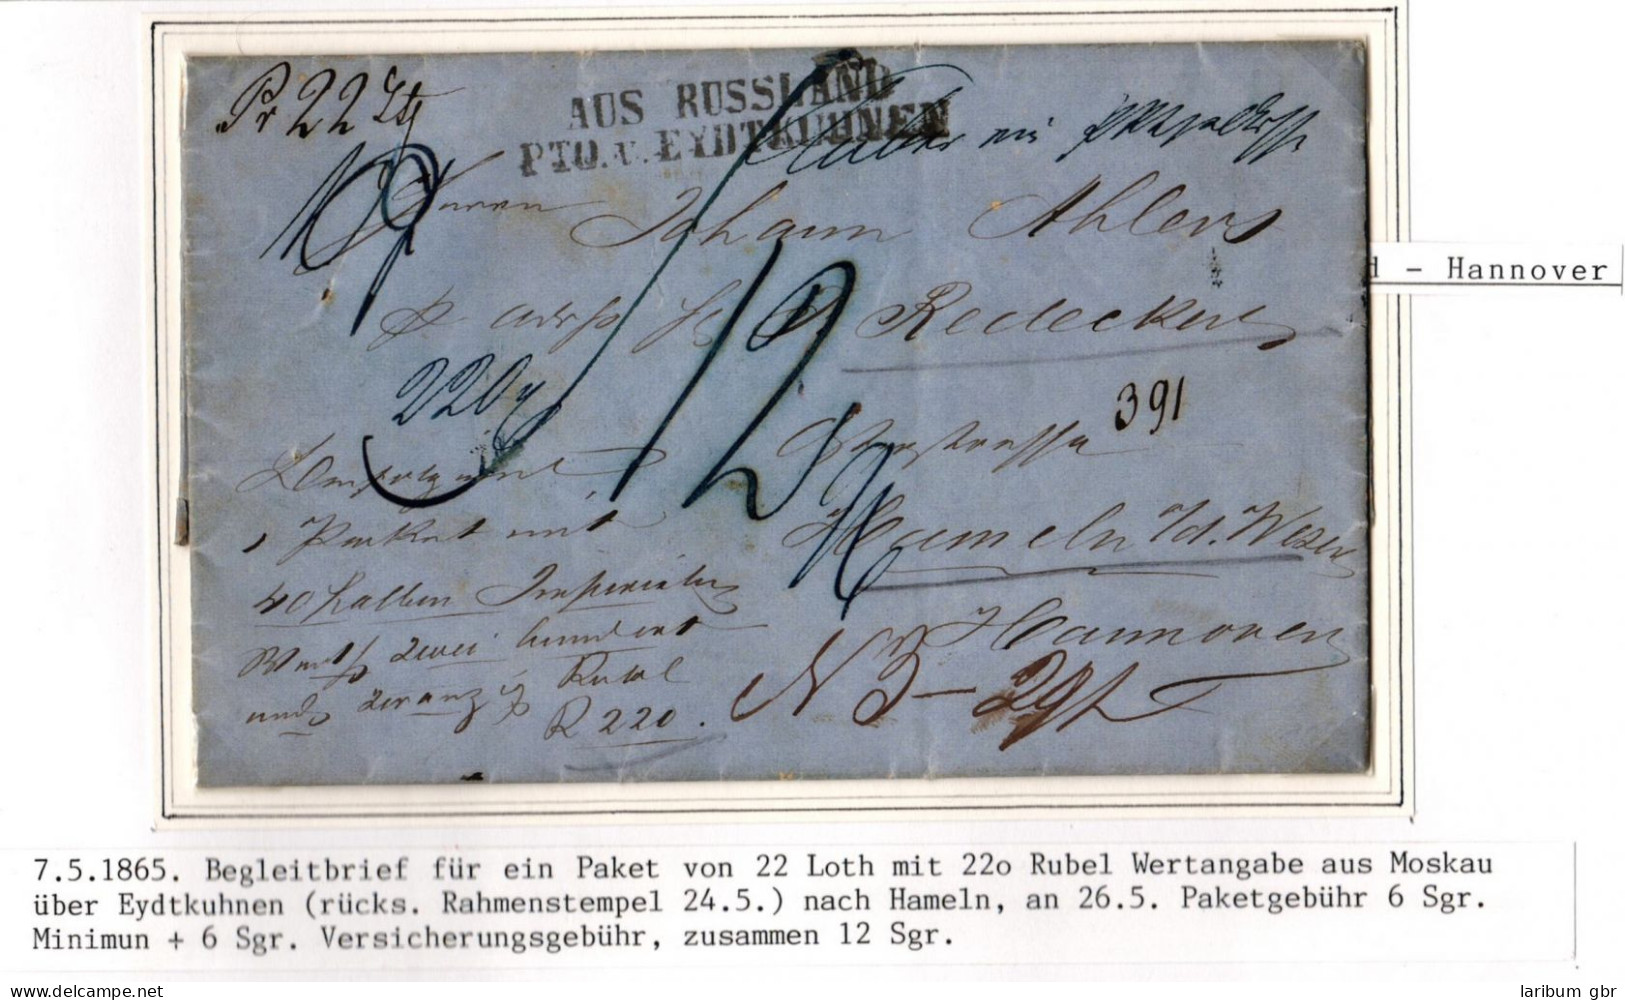 Pr 22 Lth
AUS RUSSLAND
PTO. v. EYDTKUHNEN
Herrn Johann Ahlers
Redeckers
220
391
12
1 Packet mit
Hameln a/d. Weser
40 halben Imperialen
Hannover
Werth zwei hundert
und zwanzig Rubel
R 220.
N 3 - 29
d - Hannover
7.5.1865. Begleitbrief für ein Paket von 22 Loth mit 22o Rubel Wertangabe aus Moskau
über Eydtkuhnen (rücks. Rahmenstempel 24.5.) nach Hameln, an 26.5. Paketgebühr 6 Sgr.
Minimun + 6 Sgr. Versicherungsgebühr, zusammen 12 Sgr.
www.delcampe.net
laribum gbr